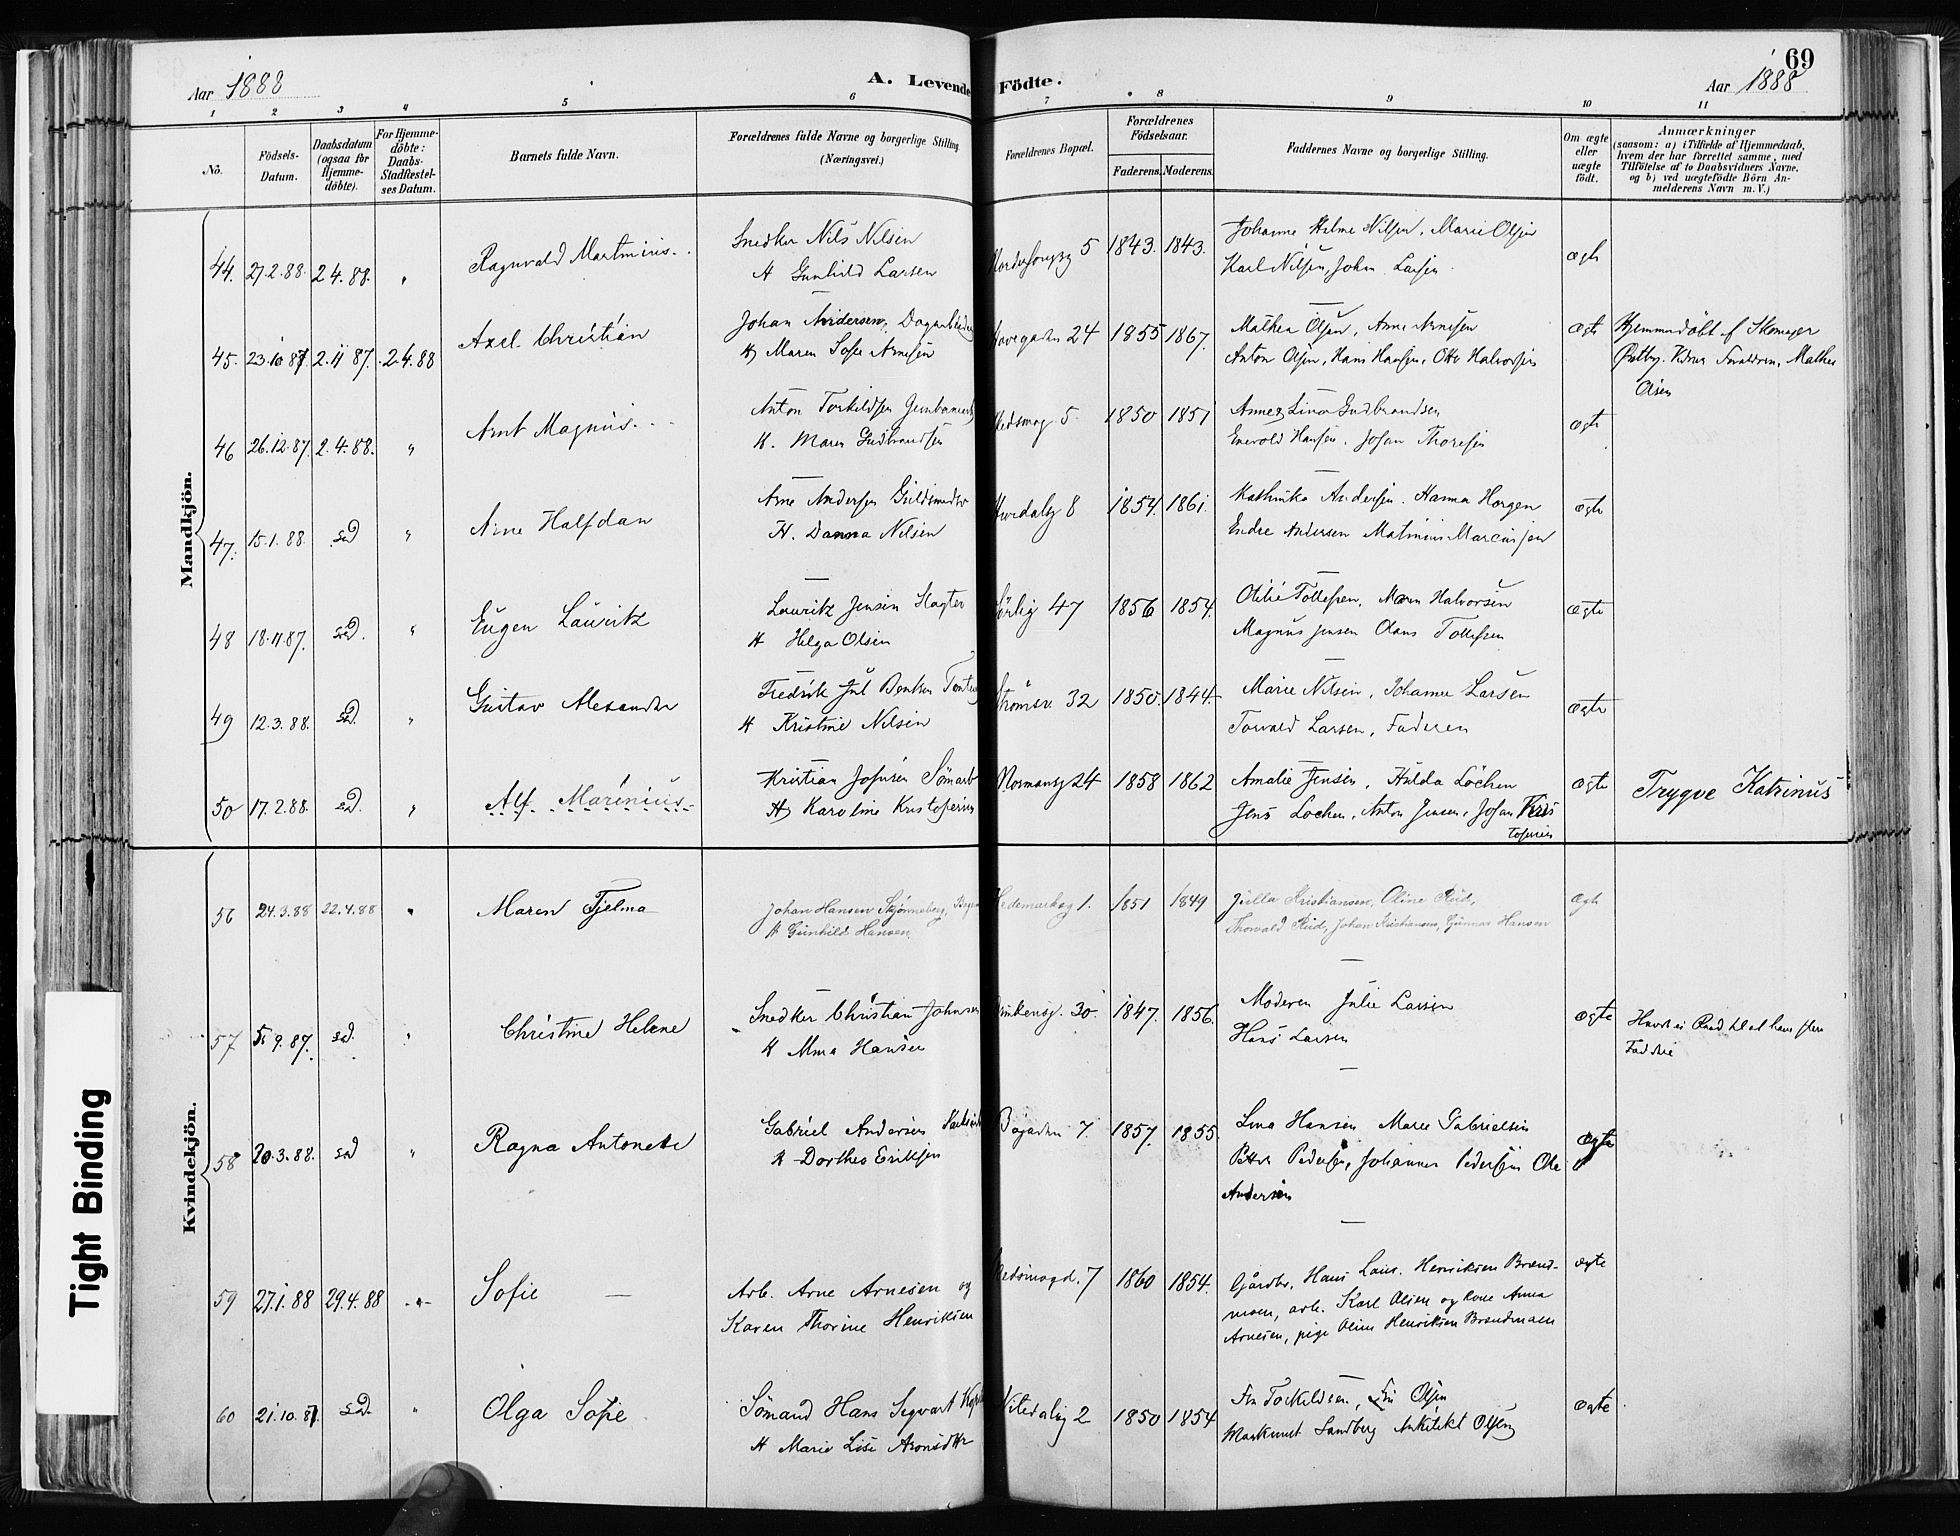 69
Aar 1888
A. Levende Födte.
Aar 1888
1 2 3 4 5 6 7 8 9 10 11
No.
Födsels-
Datum.
Daabsdatum
(ogsaa for
Hjemme-
döbte).
For Hjemme-
döbte:
Daabs-
Stadfæstel-
ses Datum.
Barnets fulde Navn.
Forældrenes fulde Navne og borgerlige Stilling
(Næringsvei.)
Forældrenes Bopæl.
Forældrenes
Födselsaar.
Faderens. Moderens.
Faddernes Navne og borgerlige Stilling.
Om ægte
eller
uægte
födt.
Anmærkninger
(saasom: a) i Tilfælde af Hjemmedaab,
hvem der har forrettet samme, med
Tilföielse af to Daabsvidners Navne,
og b) ved uægtefödte Börn An-
melderens Navn m. V.)
Mandkjön.
44. 27.2.88. 2.4.88. " Ragnvald Martinius Snedker Nils Nilsen 5 1843. 1843. Johanne Helme Nilsen, Marie Olsen ægte
H Gunhild Larsen Karl Nilsen, John Larsen
45. 23.10.87. 2.11.87. 2.4.88 Axel Christian Johan Andersen, 24 1855 1867. Mathea Olsen, Anne Arnesen ægte Hjemmedöbt af Skomager
H Maren Sofie Arnesen Anton Olsen, Hans Hansen, Otto Halvorsen Østby. Forældren, Mathea
Olsen
46 26.12.87. 2.4.88. " Arnt Magnus Anton Torkildsen 5. 1850 1851 Anne Lina Gudbrandsen ægte
H. Maren Gudbrandsen Enevold Hansen, Johan Thoresen
47. 15.1.88. sad " Arne Halfdan Arne Andersen Guldsmed 8 1854. 1861. Kathinka Andersen. Hanna Horgen ægte
H. Danna Nilsen Endre Andersen Matinius Marciusen
48 18.11.87. sad. " Eugen Lauritz Lauritz Jensen Slagter Sörlig 47 1856 1854. Otilie Tollefsen, Maren Halvorsen ægte
H Helga Olsen Magnus Jensen Olaus Tollefsen
49 12.3.88. sad. " Gustav Alexander Fredrik Jul Bentsen Strömsv. 32 1850. 1844. Marie Nilsen, Johanne Larsen ægte
H Kristine Nilsen Torvald Larsen, Faderen
50 17.2.88. sad. " Alf Marinius Kristian Johnsen Sömand Normansg 24 1858 1862 Amalie Jensen, Hulda Löchen ægte Trygve Katrinus
H Karoline Kristofersen Jens Lochen, Anton Jensen, Johan Kris
tofersen
Kvindekjön.
56 24.3.88 22.4.88 " Maren Tjelma Johan Hansen Skjønneberg, Hedemarksg 1. 1851 1849 Julla Kristiansen, Oline Rud, ægte
H Gunhild Hansen. Thorvald Rud, Johan Kristiansen, Gunnar Hansen
57 5.9.87. sad. " Christine Helene Snedker Christian Johnsen 30. 1847. 1856. Moderen Julie Larsen ægte Havde ei Raad til at have flere
H Alma Hansen Hans Larsen Faddere
58 20.3.88. sad " Ragna Antonette Gabriel Andersen Bögaden 7. 1857. 1855. Lina Hansen Maren Gabrielsen ægte
H Dorthea Eriksen Petter Pedersen, Johannes Pedersen Ole
Andersen
59 27.1.88 29.4.88 -"- Sofie — Arb. Arne Arnesen og 7 1860 1854. Gårdbr. Hans Laur. Henriksen Brænd- ægte
Karen Thorine Henriksen moen, arb. Karl Olsen og kone Anna
Arnesen, pige Oline Henriksen Brændmoen
60 21.10.87. sad. " Olga Sofie Sömand Hans Segvart Nitedalsg 2 1850 1854 Fru Torkildsen, Fru Olsen ægte
H Marie Lise Aronsdtr Sandberg Arkitekt Olsen
Tight Binding